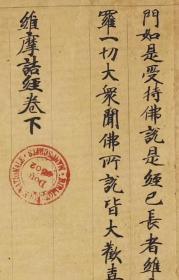 門如是受持佛說是經已長者維
羅一切大衆聞佛所說皆大歡喜
維摩詰經卷下